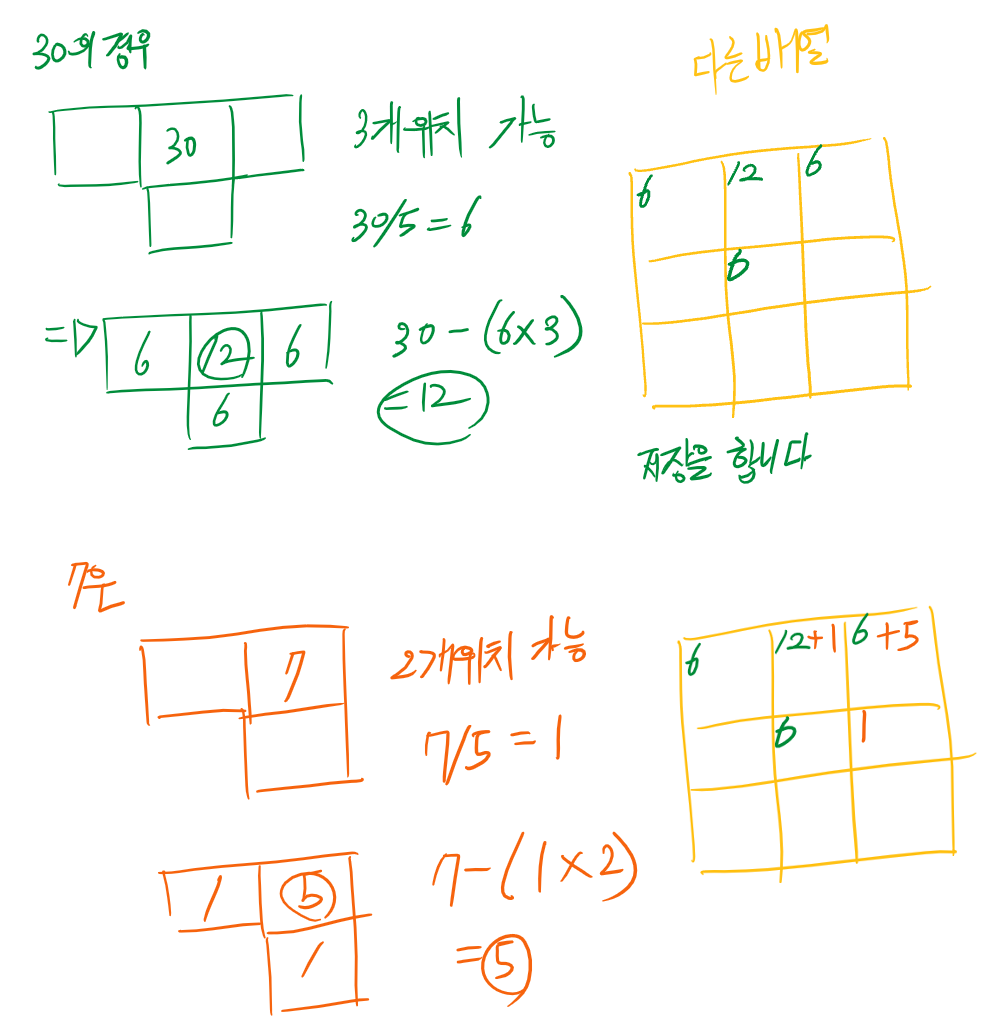 30의 경우
다른 배열
30
3개 위치 가능
30/5 = 6
6 12 6
6
=▷
6 12 6
6
30 - (6×3)
= 12
저장을 합니다
7은
7
2개위치 가능
7/5 = 1
6 12+1 6+5
6 1
1 5
1
7-(1×2)
= 5